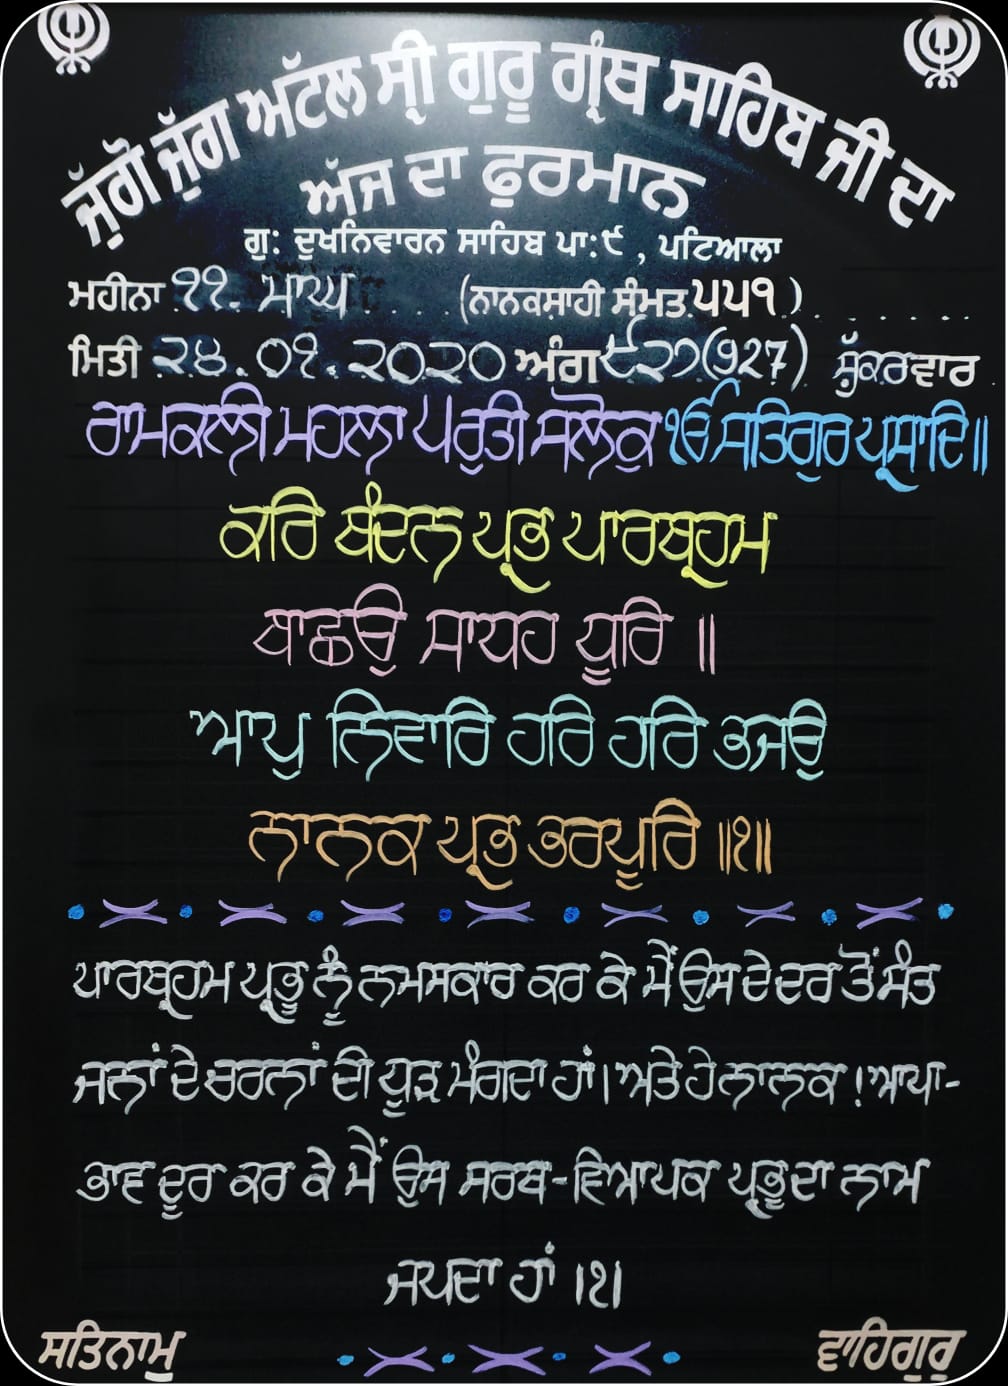 ਜੁੱਗੋ ਜੁੱਗ ਅਟੱਲ ਸ੍ਰੀ ਗੁਰੂ ਗ੍ਰੰਥ ਸਾਹਿਬ ਜੀ ਦਾ
ਅੱਜ ਦਾ ਫੁਰਮਾਨ
ਗੁ: ਦੁਖਨਿਵਾਰਨ ਸਾਹਿਬ ਪਾ:੯, ਪਟਿਆਲਾ
ਮਹੀਨਾ ੧੧. ਮਾਘ (ਨਾਨਕਸ਼ਾਹੀ ਸੰਮਤ ੫੫੧)
ਮਿਤੀ ੨੪.੦੧.੨੦੨੦ ਅੰਗ ੯੨੭(927) ਸ਼ੁੱਕਰਵਾਰ
ਰਾਮਕਲੀ ਮਹਲਾ ੫ ਰੁਤੀ ਸਲੋਕੁ ੴ ਸਤਿਗੁਰ ਪ੍ਰਸਾਦਿ॥
ਕਰਿ ਬੰਦਨ ਪ੍ਰਭ ਪਾਰਬ੍ਰਹਮ
ਬਾਛਉ ਸਾਧਹ ਧੂਰਿ ॥
ਆਪੁ ਨਿਵਾਰਿ ਹਰਿ ਹਰਿ ਭਜਉ
ਨਾਨਕ ਪ੍ਰਭ ਭਰਪੂਰਿ ॥੧॥
ਪਾਰਬ੍ਰਹਮ ਪ੍ਰਭੂ ਨੂੰ ਨਮਸਕਾਰ ਕਰ ਕੇ ਮੈਂ ਉਸ ਦੇ ਦਰ ਤੋਂ ਸੰਤ
ਜਨਾਂ ਦੇ ਚਰਨਾਂ ਦੀ ਧੂੜ ਮੰਗਦਾ ਹਾਂ। ਅਤੇ ਹੇ ਨਾਨਕ! ਆਪਾ-
ਭਾਵ ਦੂਰ ਕਰ ਕੇ ਮੈਂ ਉਸ ਸਰਬ-ਵਿਆਪਕ ਪ੍ਰਭੂ ਦਾ ਨਾਮ
ਜਪਦਾ ਹਾਂ ।੧।
ਸਤਿਨਾਮੁ ਵਾਹਿਗੁਰੁ